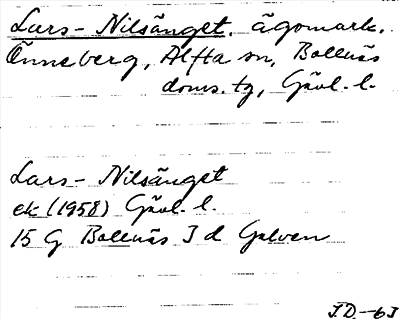 Lars-Nilsänget, ägomark.
Önneberg, Alfta sn, Bollnäs
doms.tg, Gävl. l.
Lars-Nilsänget
ek (1958) Gävl. l.
15 G Bollnäs 3 d Galven